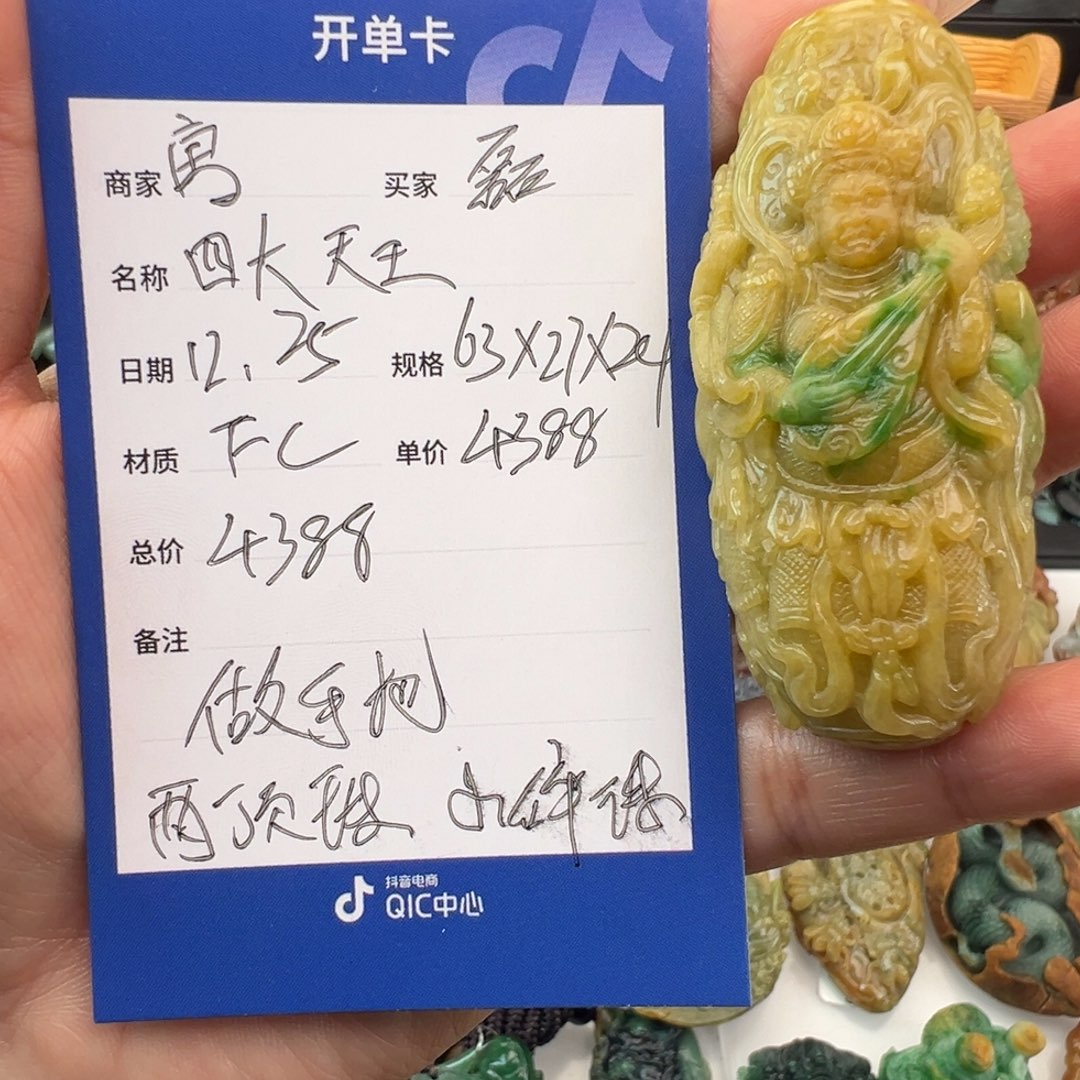 开单卡
商家 寓 买家 磊
名称 四大天王
日期 12.25 规格 63X27X24
材质 FC 单价 4388
总价 4388
备注
做手把
两顶珠
抖音电商
QIC中心